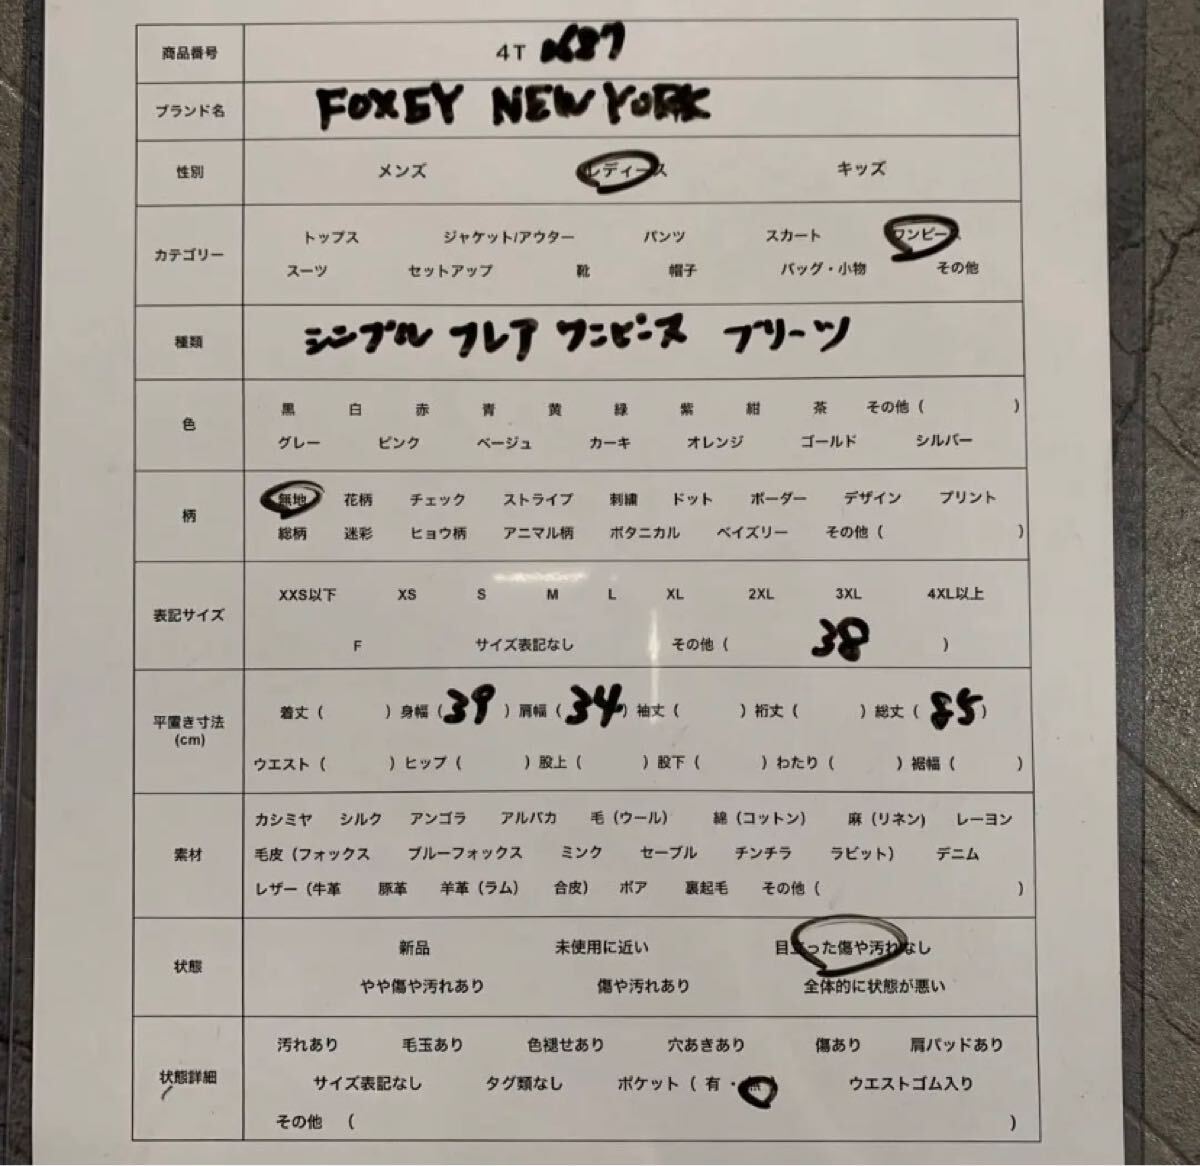 商品番号 4T 0687
ブランド名 FOXEY NEW YORK
性別 メンズ レディース キッズ
カテゴリー
トップス ジャケット/アウター パンツ スカート ワンピース
スーツ セットアップ 靴 帽子 バッグ・小物 その他
種類 シンプル フレア ワンピース プリーツ
色
黒 白 赤 青 黄 緑 紫 紺 茶 その他 ( )
グレー ピンク ベージュ カーキ オレンジ ゴールド シルバー
柄
無地 花柄 チェック ストライプ 刺繍 ドット ボーダー デザイン プリント
総柄 迷彩 ヒョウ柄 アニマル柄 ボタニカル ペイズリー その他 ( )
表記サイズ
XXS以下 XS S M L XL 2XL 3XL 4XL以上
F サイズ表記なし その他 ( 38 )
平置き寸法
(cm)
着丈 ( ) 身幅 ( 39 ) 肩幅 ( 34 ) 袖丈 ( ) 裄丈 ( ) 総丈 ( 85 )
ウエスト ( ) ヒップ ( ) 股上 ( ) 股下 ( ) わたり ( ) 裾幅 ( )
素材
カシミヤ シルク アンゴラ アルパカ 毛 (ウール) 綿 (コットン) 麻 (リネン) レーヨン
毛皮 (フォックス ブルーフォックス ミンク セーブル チンチラ ラビット) デニム
レザー (牛革 豚革 羊革 (ラム) 合皮) ボア 裏起毛 その他 ( )
状態
新品 未使用に近い 目立った傷や汚れなし
やや傷や汚れあり 傷や汚れあり 全体的に状態が悪い
状態詳細
汚れあり 毛玉あり 色褪せあり 穴あきあり 傷あり 肩パッドあり
サイズ表記なし タグ類なし ポケット ( 有 ・ 無 ) ウエストゴム入り
その他 ( )